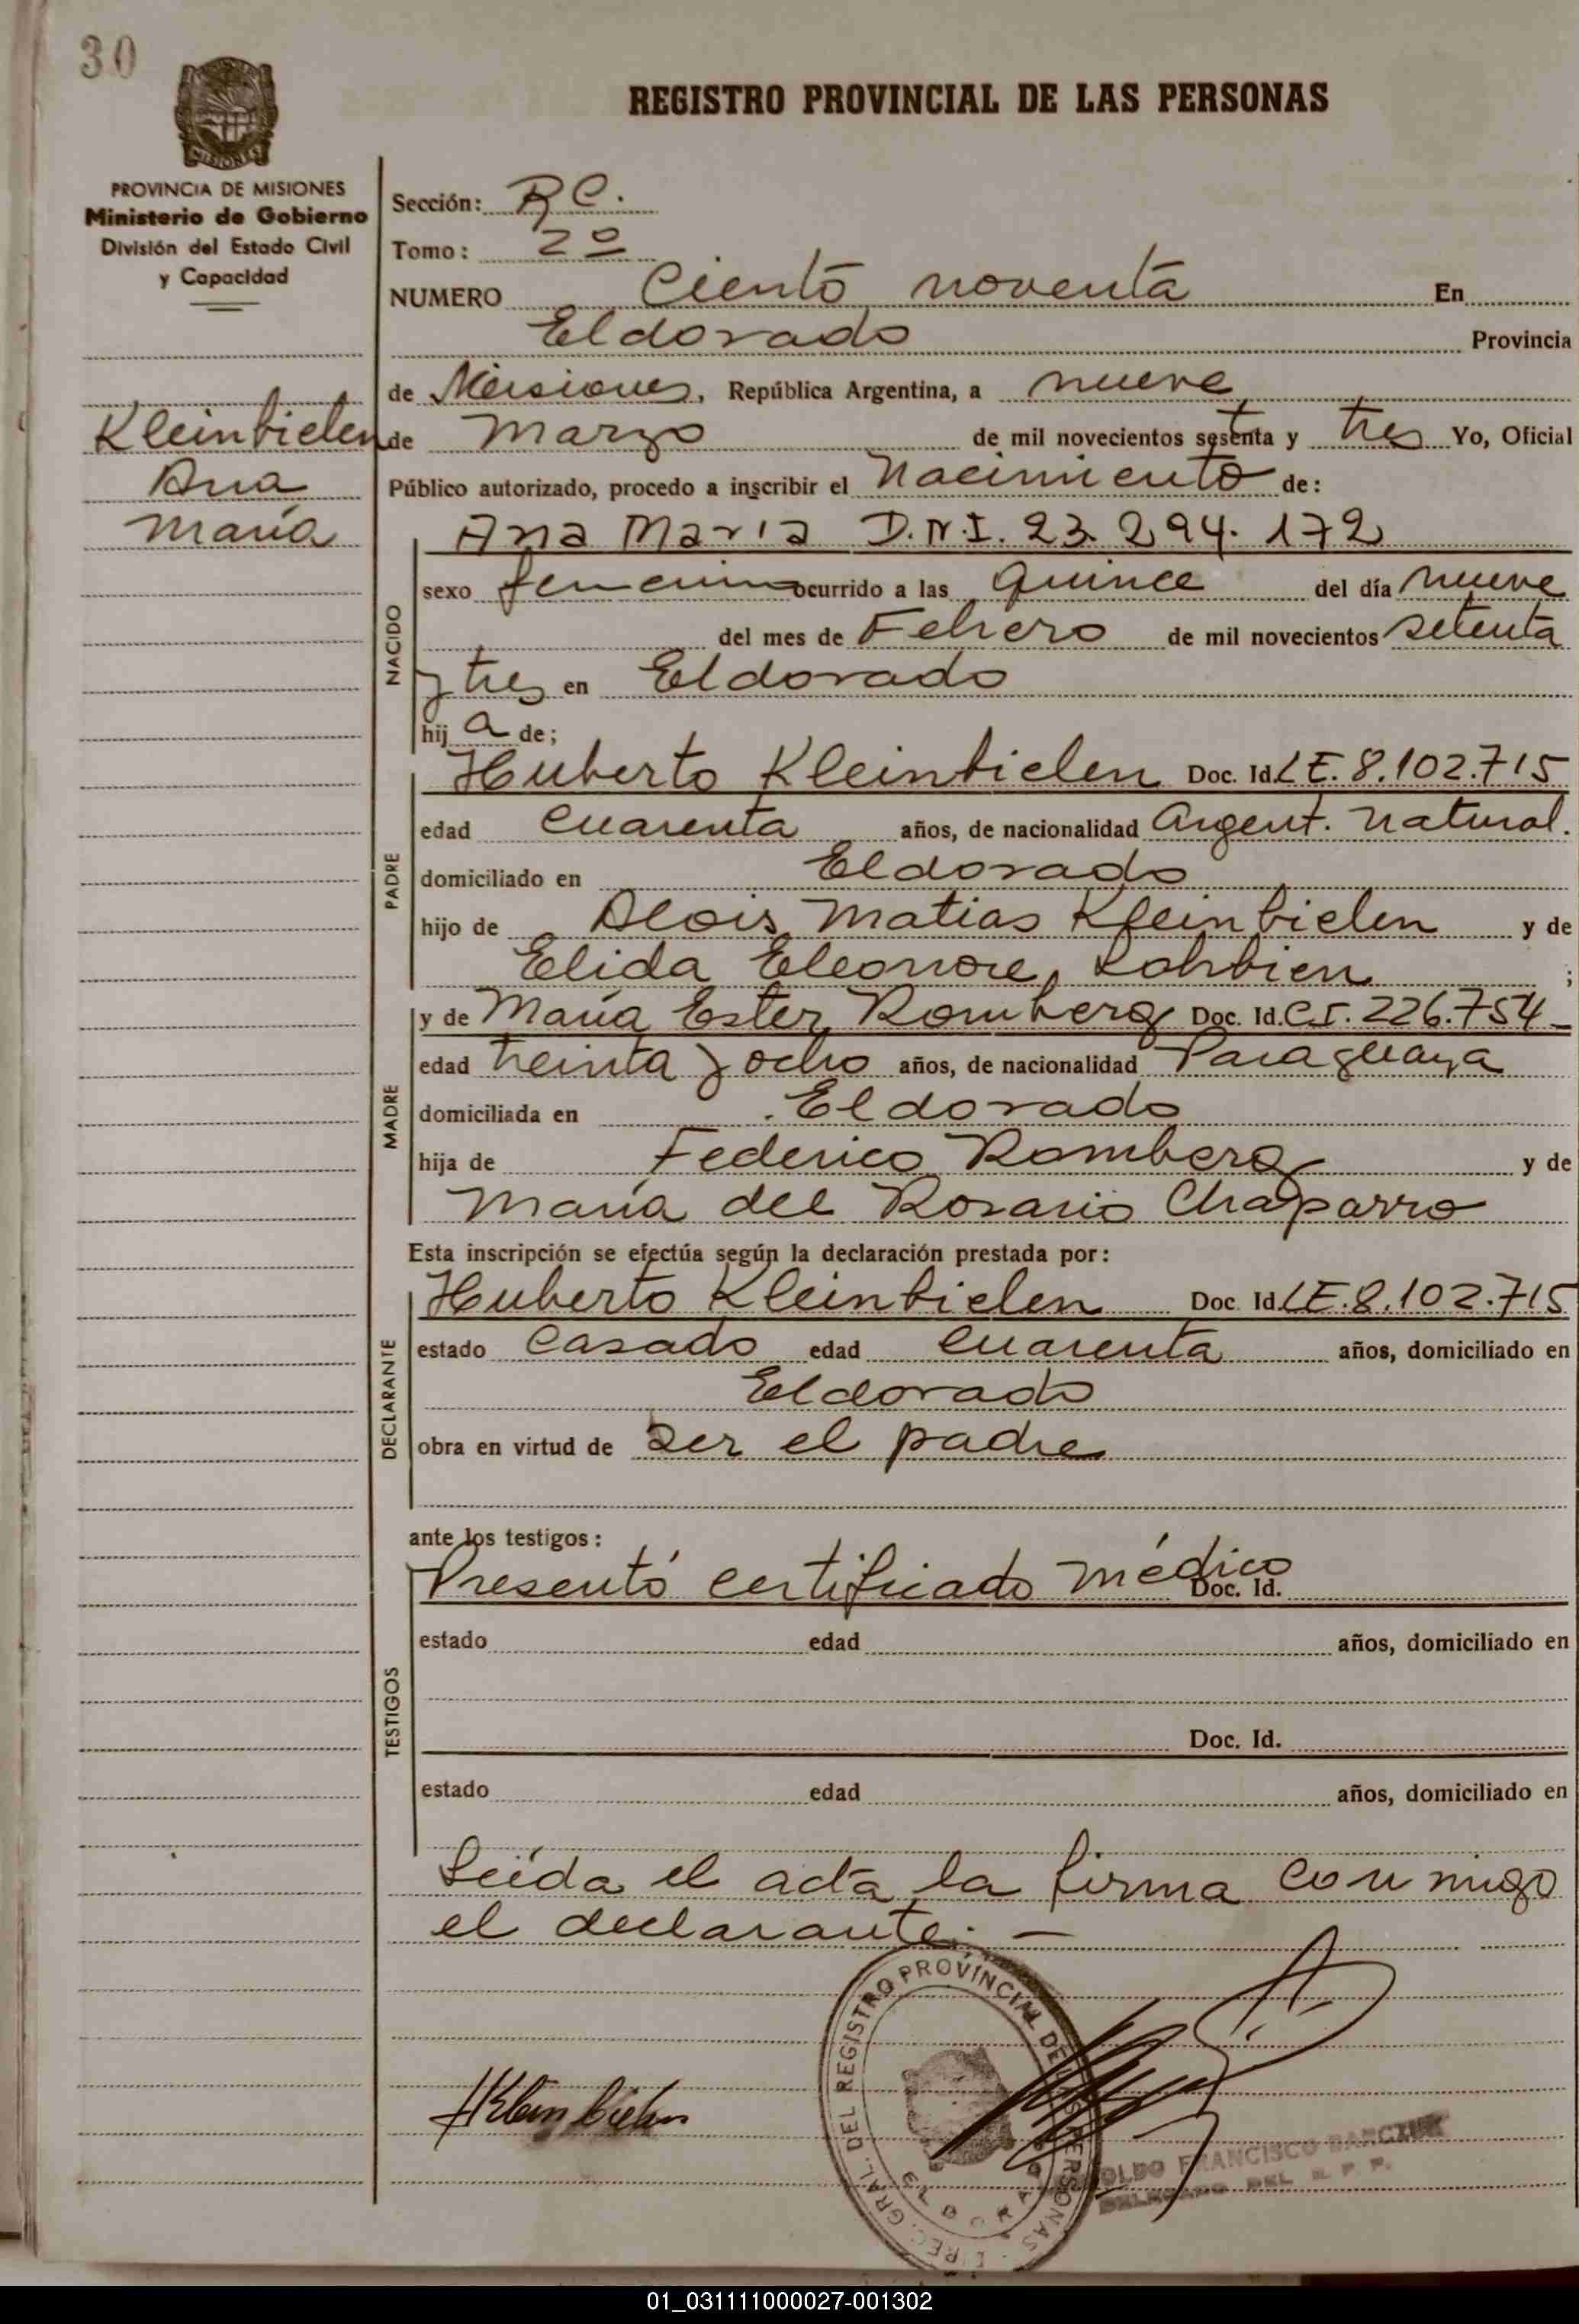 30
REGISTRO PROVINCIAL DE LAS PERSONAS
MISIONES
PROVINCIA DE MISIONES
Ministerio de Gobierno
División del Estado Civil
y Capacidad
Kleinbielen
Ana
María
Sección: R C.
Tomo: 2º
NUMERO Ciento noventa En
Eldorado Provincia
de Misiones, República Argentina, a nueve
de Marzo de mil novecientos sestenta y tres Yo, Oficial
Público autorizado, procedo a inscribir el Nacimiento de:
Ana Maria D.N.I. 23.294.172
NACIDO
sexo femenino ocurrido a las quince del día nueve
del mes de Febrero de mil novecientos setenta
y tres en Eldorado
hij a de;
PADRE
Huberto Kleinbielen Doc. Id. LE. 8.102.715
edad cuarenta años, de nacionalidad Argent. Natural.
domiciliado en Eldorado
hijo de Alois Matias Kleinbielen y de
Elida Eleonore ;
MADRE
y de María Ester Romberg Doc. Id. CI. 226.754
edad treinta y ocho años, de nacionalidad Paraguaya
domiciliada en Eldorado
hija de Federico Romberg y de
María del Rosario Chaparro
Esta inscripción se efectúa según la declaración prestada por:
DECLARANTE
Huberto Kleinbielen Doc. Id. LE. 8.102.715
estado casado edad cuarenta años, domiciliado en
Eldorado
obra en virtud de ser el padre
ante los testigos:
TESTIGOS
Presentó certificado médico Doc. Id.
estado edad años, domiciliado en
Doc. Id.
estado edad años, domiciliado en
Leída el acta la firma conmigo
el declarante. —
HKleinbielen
DIREC. GRAL. DEL REGISTRO PROVINCIAL DE LAS PERSONAS
ELDORADO
FRANCISCO
DELEGADO DEL R. P. P.
01_031111000027-001302